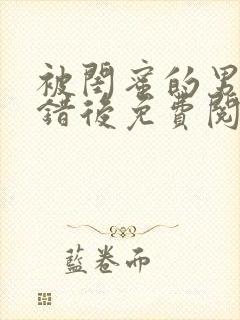 被閨蜜的男
錯後免費閱
藍卷而